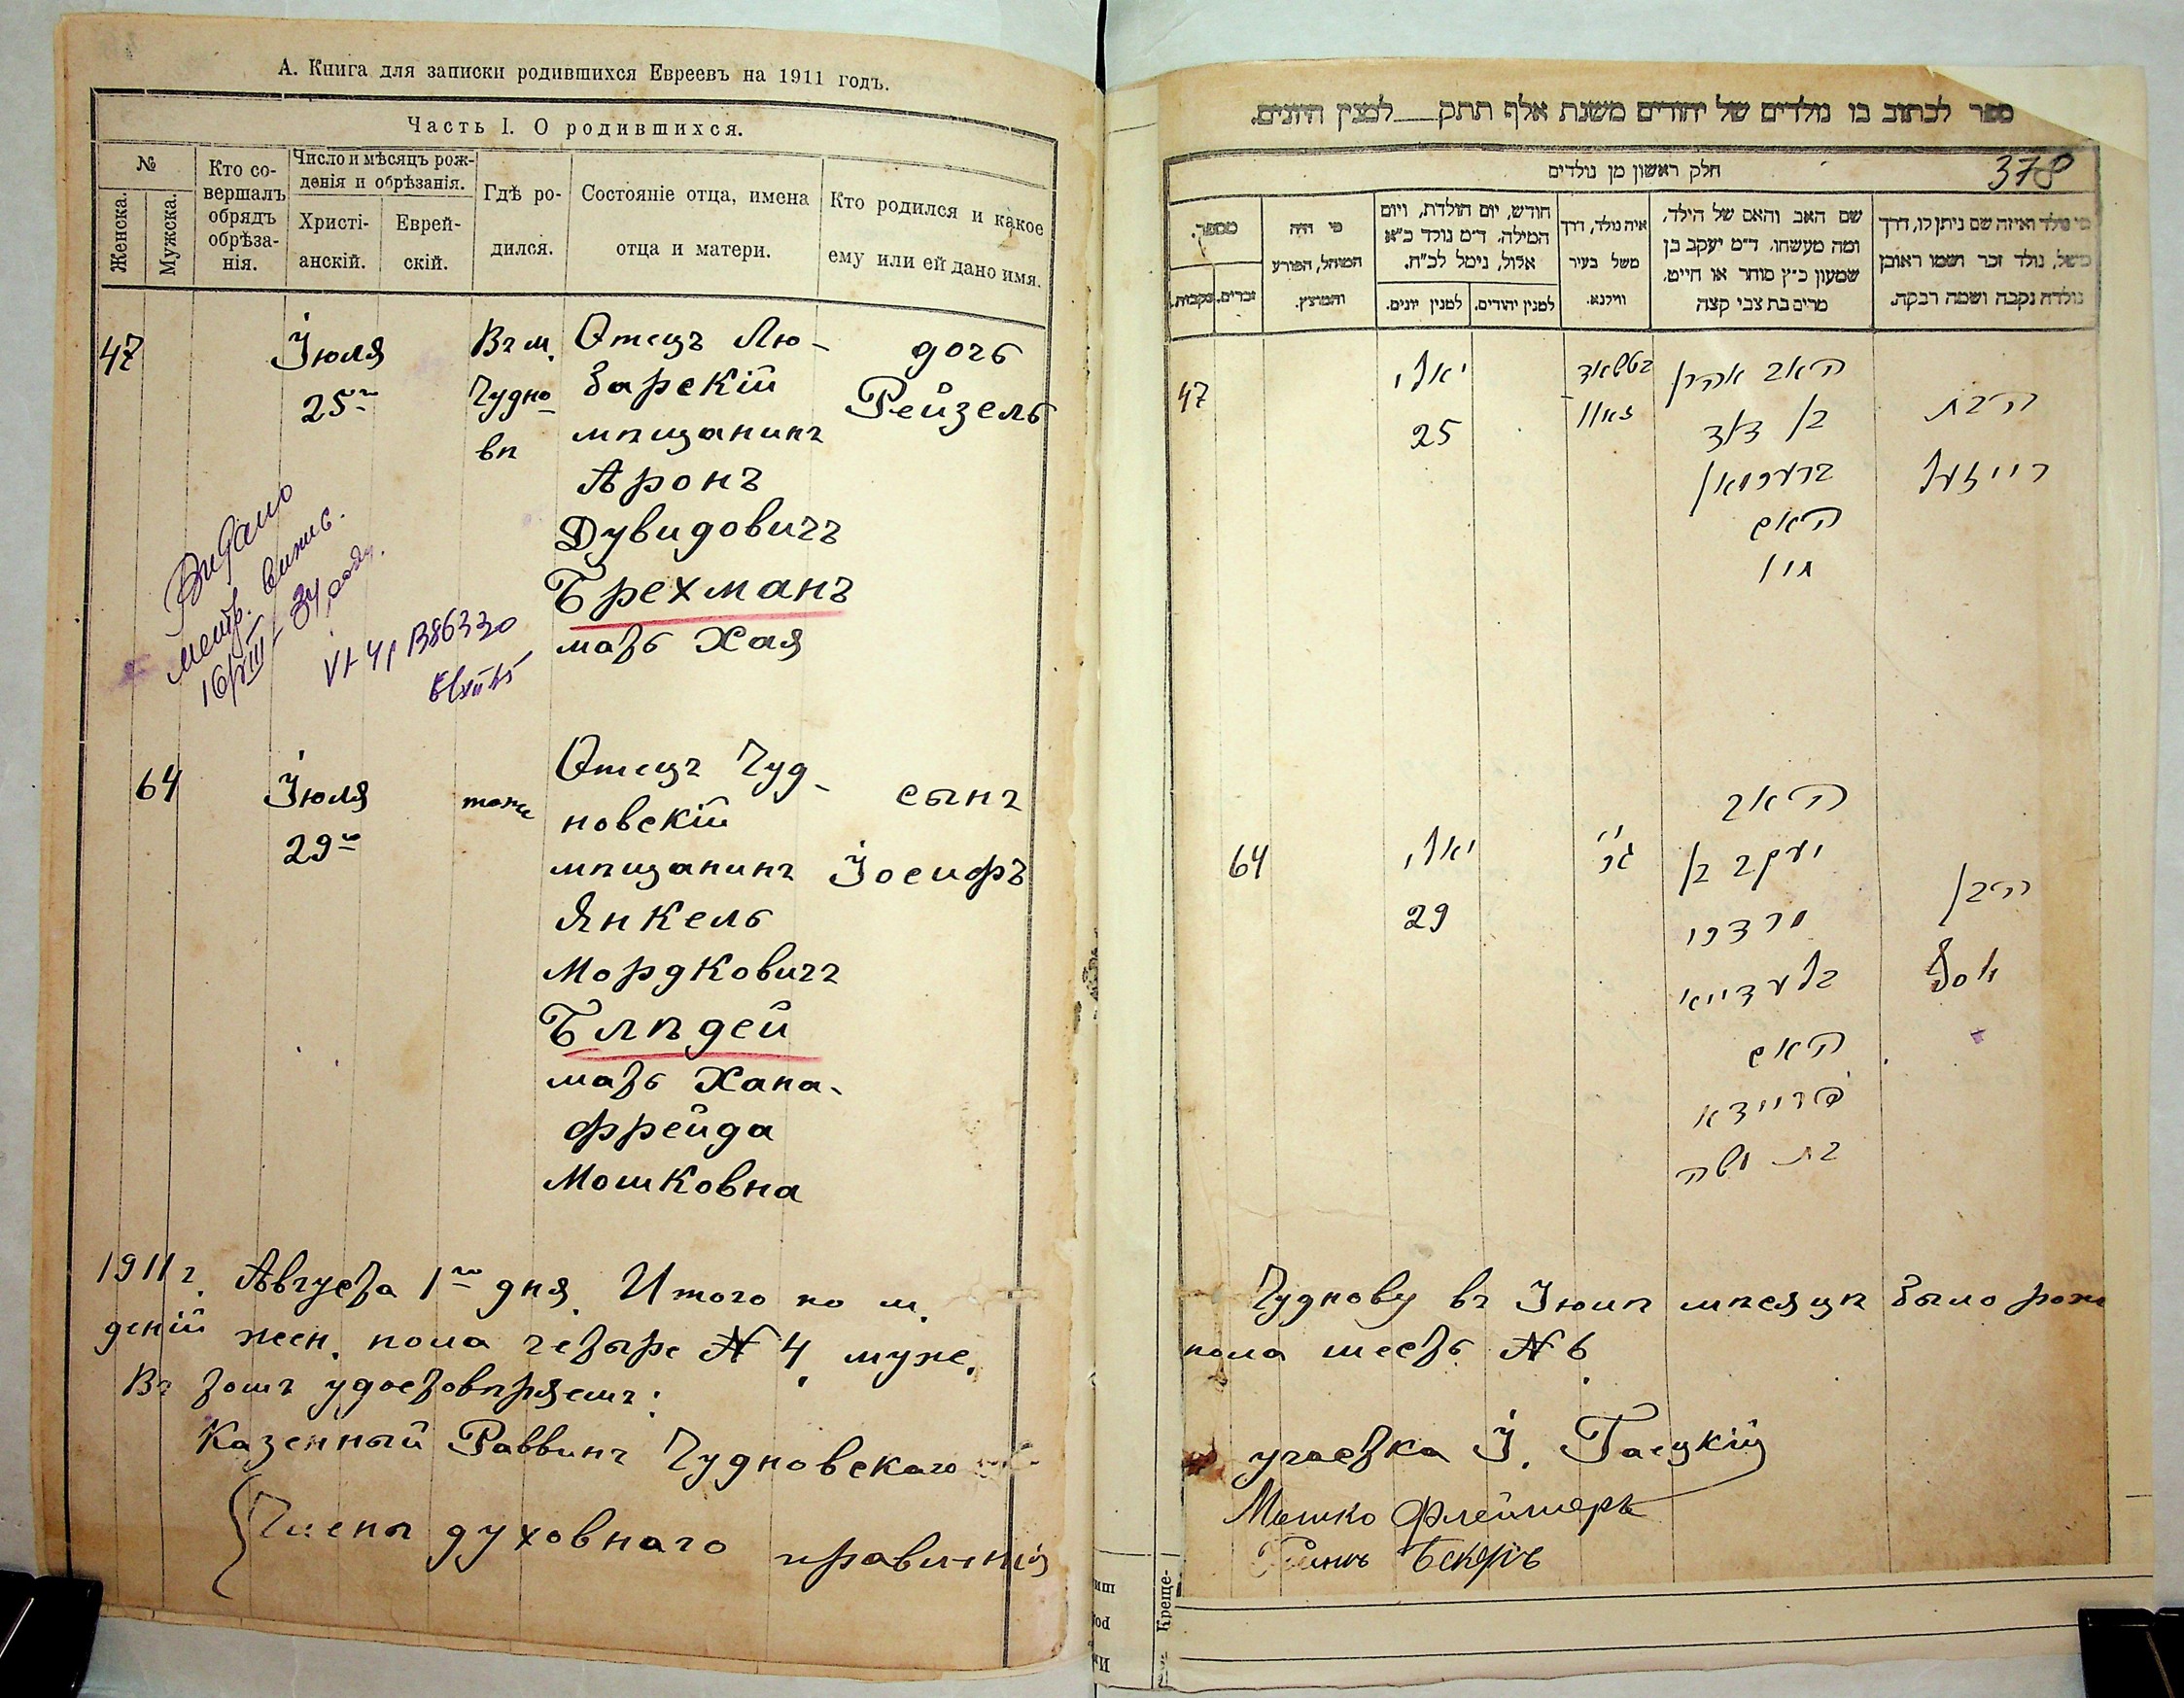 А. Книга для записки родившихся Евреевъ на 1911 годъ.
Часть I. О родившихся.
№
Женска.
Мужска.
Кто со-
вершалъ
обрядъ
обрѣза-
нія.
Число и мѣсяцъ рож-
денія и обрѣзанія.
Христі-
анскій.
Еврей-
скій.
Гдѣ ро-
дился.
Состояніе отца, имена
отца и матери.
Кто родился и какое
ему или ей дано имя.
47
Іюля
25го
Въ м.
Чудно
вѣ
Отецъ Лю-
барскій
мѣщанинъ
Аронъ
Дувидовичъ
Брехманъ
мать Хая
дочь
Рейзель
Видано
метр.
16/VIII 34 году.
64
Іюля
29го
тоже
Отецъ Чуд-
новскій
мѣщанинъ
Янкель
Мордковичъ
Блѣдей
мать Хана-
Фрейда
Мошковна
сынъ
Іосифъ
1911 г. Августа 1го дня. Итого по м.
деній жен. пола четыре № 4, муже.
Въ томъ удостовѣряемъ:
Казенный Раввинъ Чудновскаго
Члены духовнаго правленія
ספר לכתוב בו נולדים של יהודים משנת אלף תתק למנין היונים.
חלק ראשון מן נולדים
378
מספר.
נקבות.
זכרים.
מי היה
המוהל, הפורע
והמוצץ.
חודש, יום הולדת, ויום
המילה. ד״מ נולד כ״א
אלול, נימל לכ״ח.
למנין יונים.
למנין יהודים.
איה נולד, דרך
משל בעיר
ווילנא.
שם האב והאם של הילד,
ומה מעשהו. ד״מ יעקב בן
שמעון כ״ץ סוחר או חייט.
מרים בת צבי קצה
מי נולד ואיזה שם ניתן לו, דרך
משל, נולד זכר ושמו ראובן
נולדה נקבה ושמה רבקה.
47
יאלי
25
האב אהרן
בן דוד
ברעכמאן
האם
חי׳
הבת
רייזעל
64
יאלי
29
האב
יעקב בן
מרדכי
בלעדייאי
האם
פריידא
בת משה
הבן
יוסף
Чуднову въ Іюлѣ мѣсяцѣ было рож
пола шесть № 6.
участка І. Гальцкій
Мошко Флейшеръ